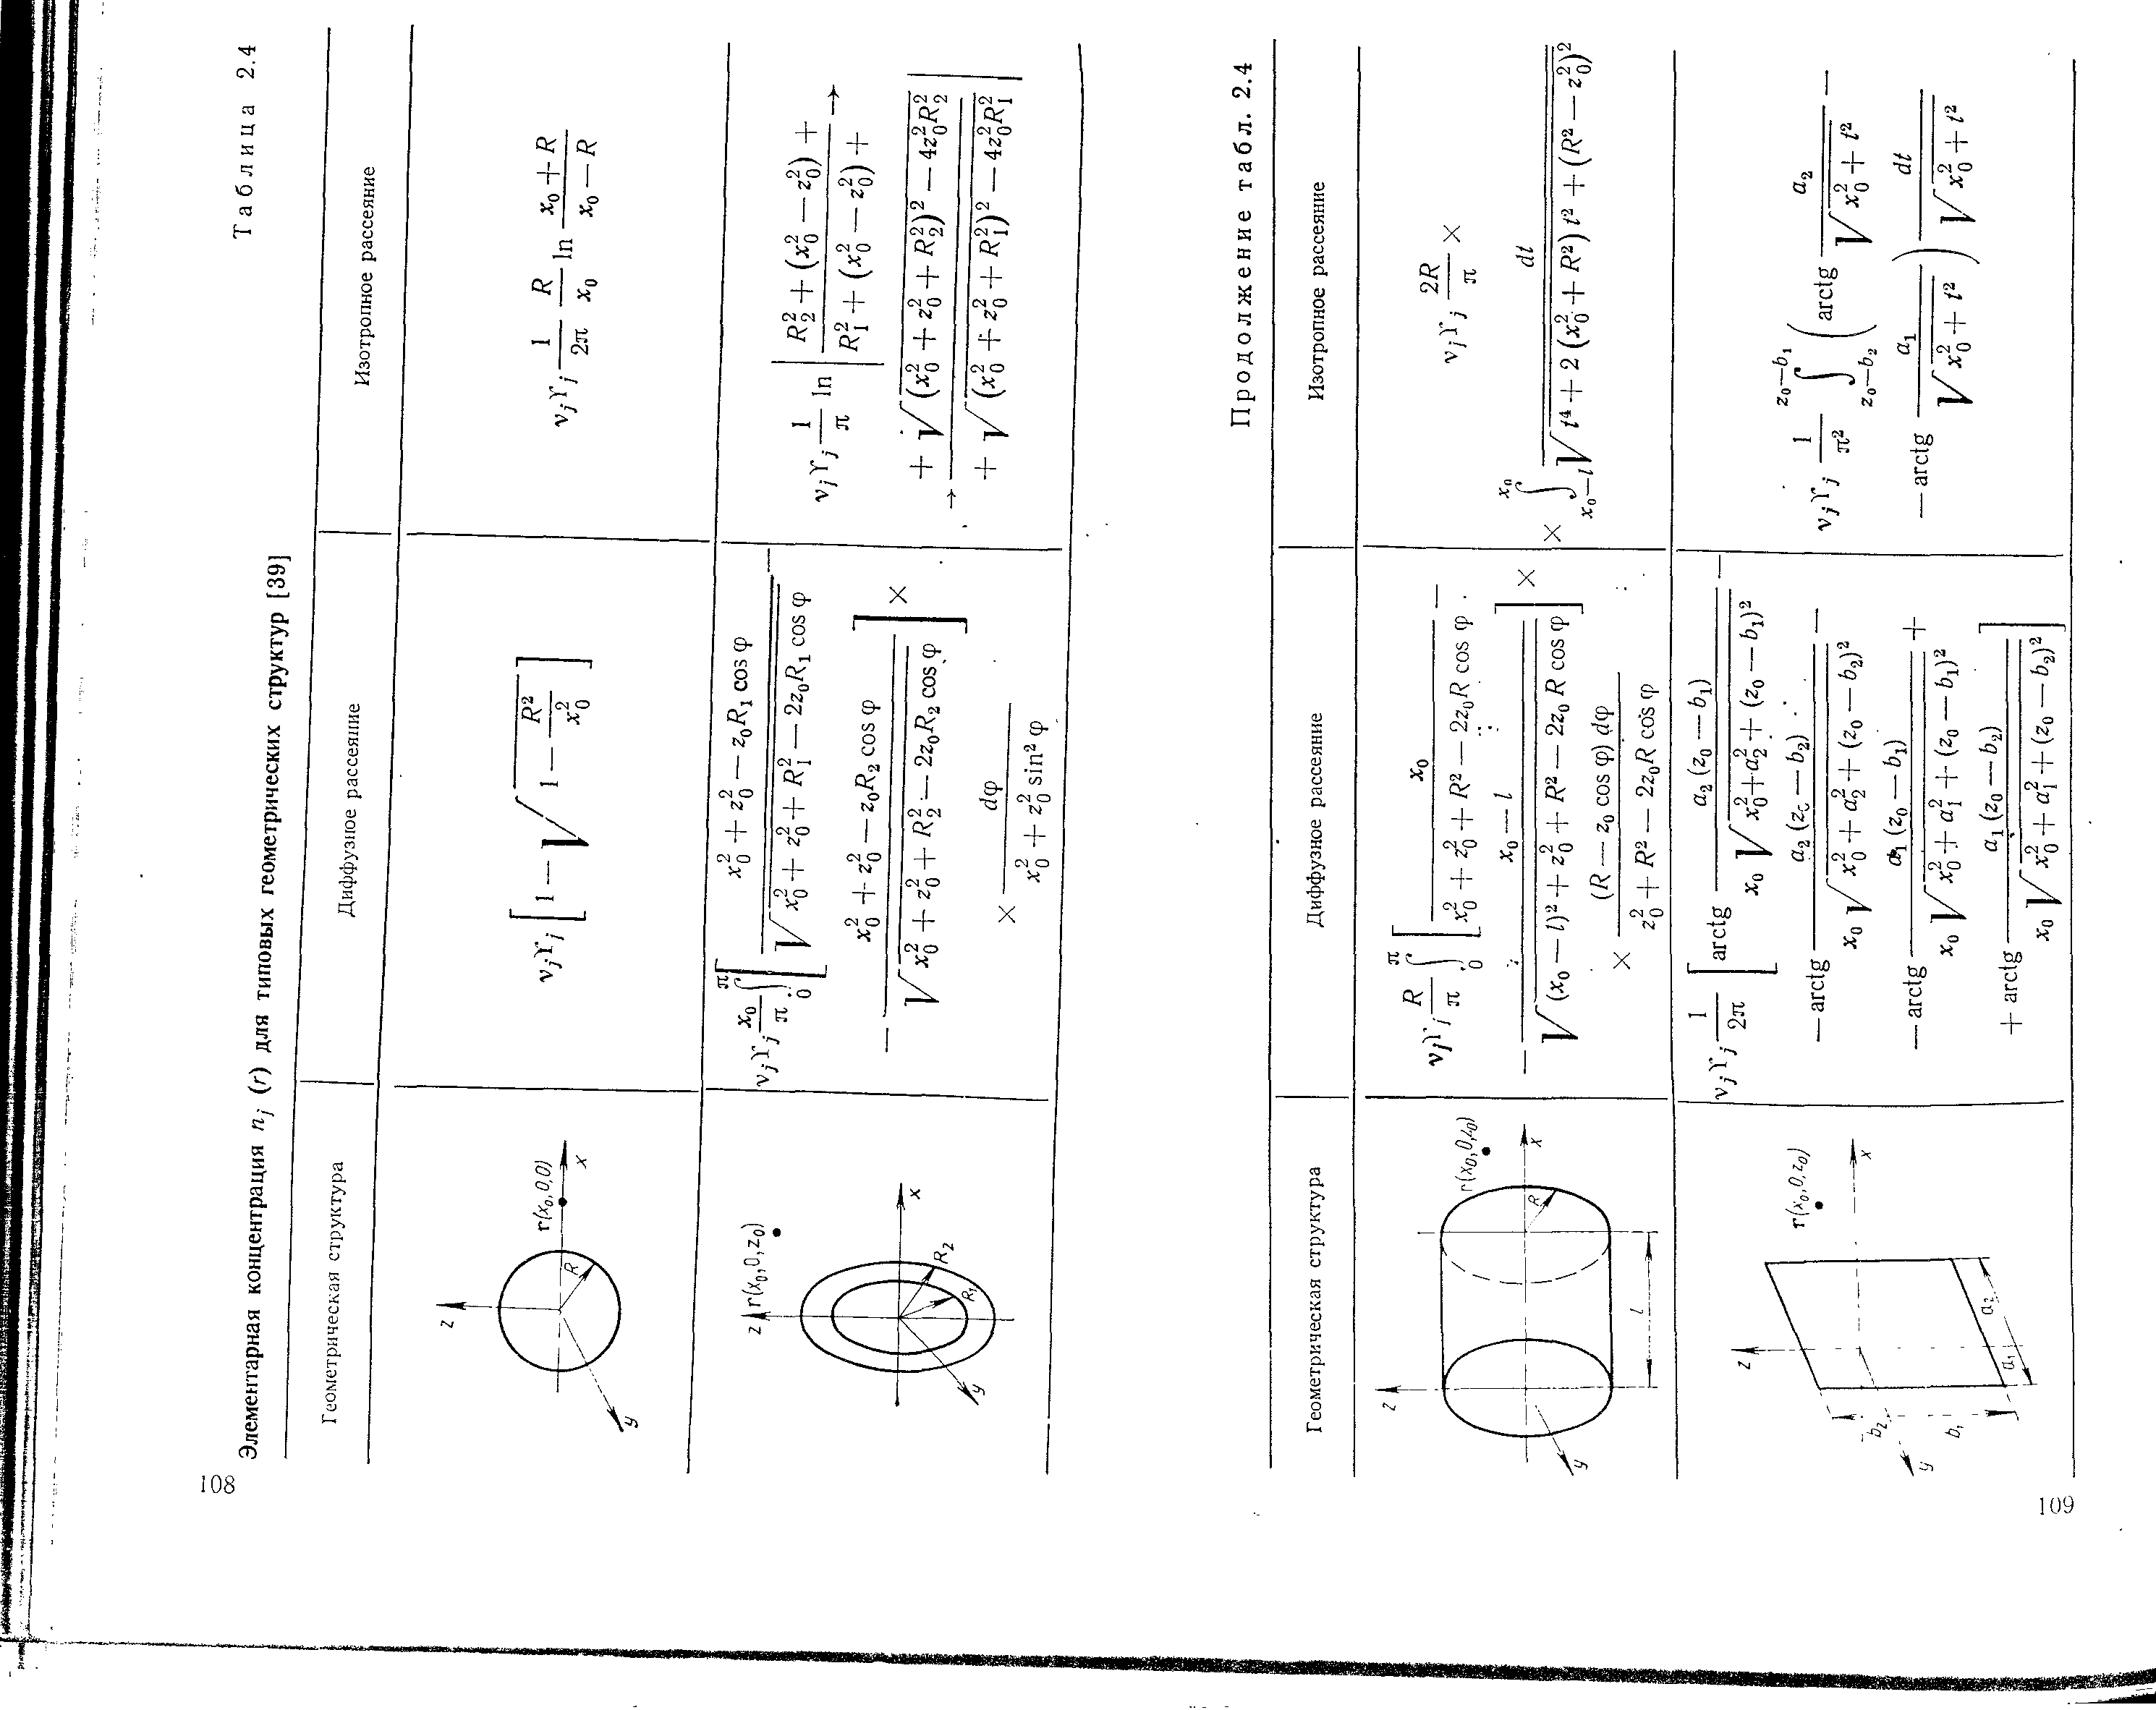 108
Таблица 2.4
Элементарная концентрация n_j (r) для типовых геометрических структур [39]
Геометрическая структура | Диффузное рассеяние | Изотропное рассеяние
z r(x₀,0,0) R x y
ν_jϒ_j [1 − √(1 − R²/x₀²)]
ν_jϒ_j (1/2π) (R/x₀) ln (x₀ + R)/(x₀ − R)
z r(x₀,0,z₀) R₁ R₂ x y
ν_jϒ_j (x₀/π) ∫₀^π [ (x₀² + z₀² − z₀R₁ cos φ)/√(x₀² + z₀² + R₁² − 2z₀R₁ cos φ) −
− (x₀² + z₀² − z₀R₂ cos φ)/√(x₀² + z₀² + R₂² − 2z₀R₂ cos φ) ] ×
× dφ/(x₀² + z₀² sin² φ)
ν_jϒ_j (1/π) ln | (R₂² + (x₀² − z₀²) +)/(R₁² + (x₀² − z₀²) +) →
→ (+ √((x₀² + z₀² + R₂²)² − 4z₀²R₂²))/(+ √((x₀² + z₀² + R₁²)² − 4z₀²R₁²)) |
Продолжение табл. 2.4
Геометрическая структура | Диффузное рассеяние | Изотропное рассеяние
z r(x₀,0,z₀) R l x y
ν_jϒ_j (R/π) ∫₀^π [ x₀/(x₀² + z₀² + R² − 2z₀R cos φ) −
− (x₀ − l)/√((x₀ − l)² + z₀² + R² − 2z₀R cos φ) ] ×
× (R − z₀ cos φ) dφ/(z₀² + R² − 2z₀R cos φ)
ν_jϒ_j (2R/π) ×
× ∫_{x₀−l}^{x₀} dt/√(t⁴ + 2 (x₀² + R²) t² + (R² − z₀²)²)
z r(x₀,0,z₀) x y a₁ a₂ b₂ b₁
ν_jϒ_j (1/2π) [ arctg a₂ (z₀ − b₁)/(x₀ √(x₀² + a₂² + (z₀ − b₁)²)) −
− arctg a₂ (z₀ − b₂)/(x₀ √(x₀² + a₂² + (z₀ − b₂)²)) −
− arctg a₁ (z₀ − b₁)/(x₀ √(x₀² + a₁² + (z₀ − b₁)²)) +
+ arctg a₁ (z₀ − b₂)/(x₀ √(x₀² + a₁² + (z₀ − b₂)²)) ]
ν_jϒ_j (1/π²) ∫_{z₀−b₂}^{z₀−b₁} ( arctg a₂/√(x₀² + t²) −
− arctg a₁/√(x₀² + t²) ) dt/√(x₀² + t²)
109